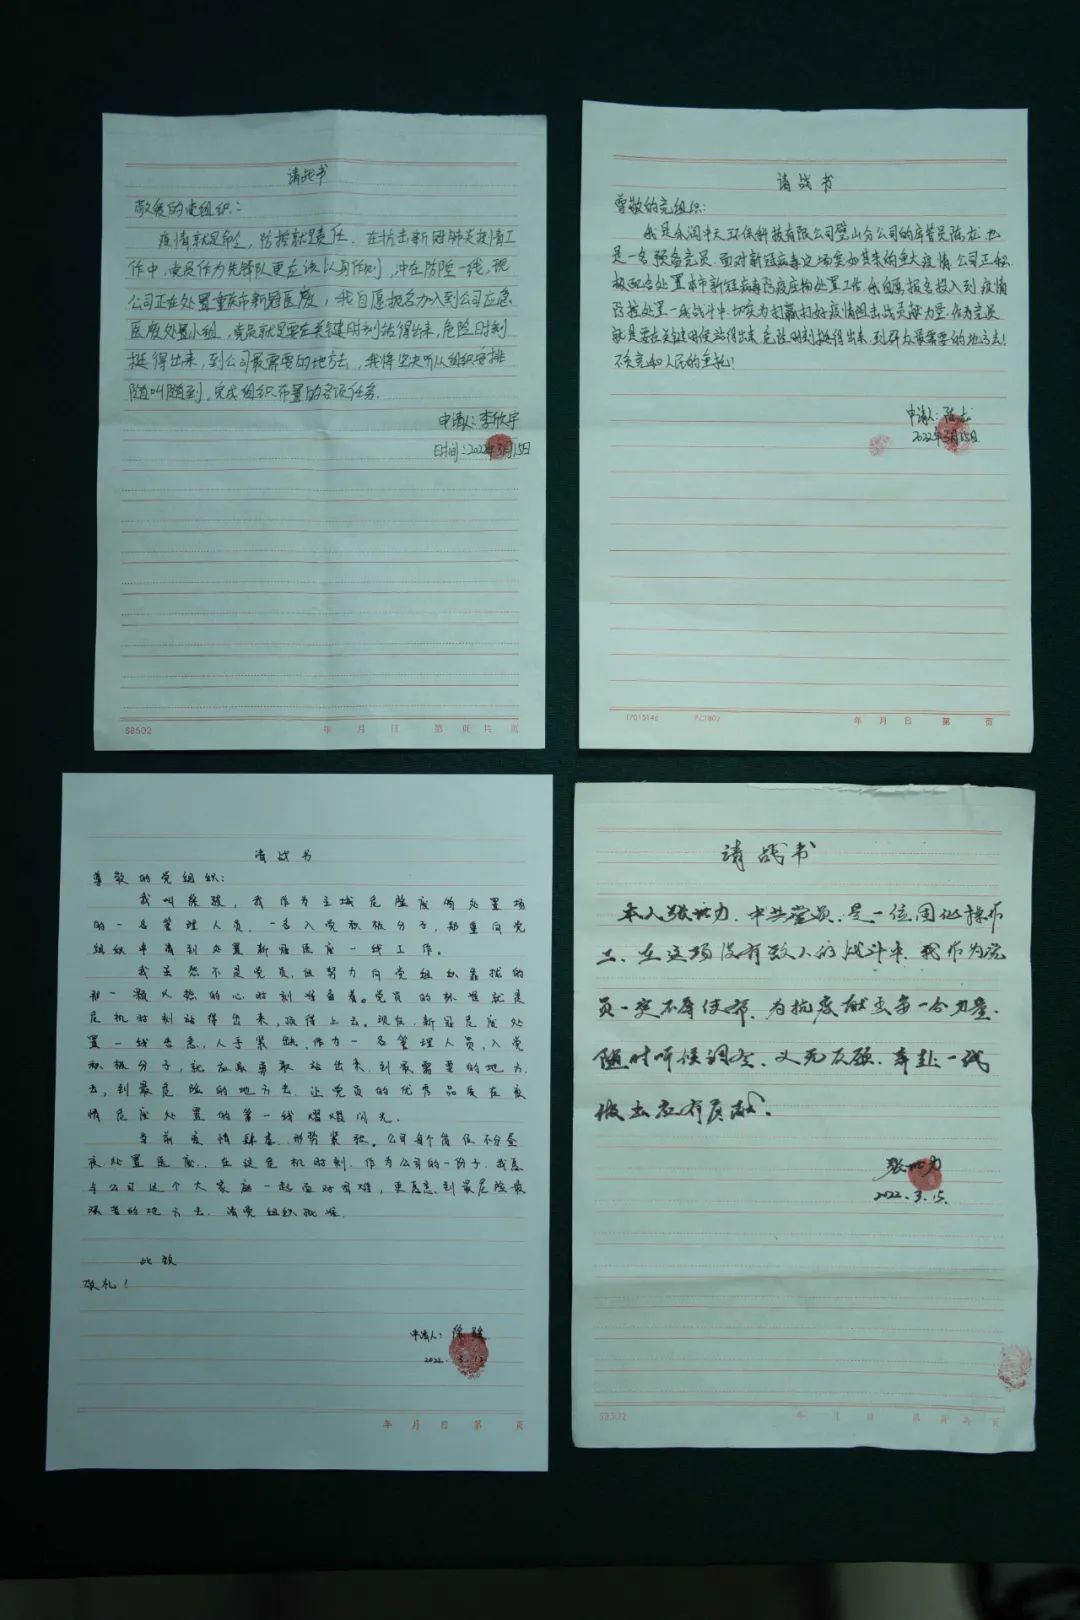 请战书
敬爱的党组织:
疫情就是命令，防控就是责任。在抗击新冠肺炎疫情工
作中，党员作为先锋队更应该以身作则，冲在防疫一线，现
公司正在处置重庆市新冠医废，我自愿报名加入到公司应急
医废处置小组，党员就是要在关键时刻站得出来，危险时刻
挺得出来，到公司最需要的地方去，我将坚决听从组织安排
随叫随到，完成组织布置的各项任务。
申请人:李欣宇
时间:2022年3月15日
SB502
年 月 日 第 页 共 页
请战书
尊敬的党组织:
我是永润中天环保科技有限公司璧山分公司的库管员陈龙,也
是一名预备党员.面对新冠病毒这场突如其来的重大疫情,公司正积
极配合处置本市新冠病毒防疫废物处置工作,我自愿报名投入到疫情
防控处置一线战斗中,切实为打赢打好疫情阻击战贡献力量.作为党员
就是要在关键时候站得出来,危险时刻挺得出来,到群众最需要的地方去!
不负党和人民的重托!
申请人:陈龙
2022年3月15日
17015146 PC1802
年 月 日 第 页
请战书
尊敬的党组织:
我叫 我作为主城危险废物处置场
的一名管理人员,一名入党积极分子,郑重向党
组织申请到处置新冠医废一线工作。
我虽然不是党员,但努力向党组织靠拢的
那一颗火热的心时刻准备着。党员的标准就是
危机时刻站得出来,顶得上去。现在,新冠危废处
置一线告急,人手紧缺,作为一名管理人员,入党
积极分子,就应该勇敢站出来,到最需要的地方
去,到最危险的地方去,让党员的优秀品质在疫
情危废处置的第一线熠熠闪光。
当前疫情肆虐,形势紧张。公司每个岗位不分昼
夜处置医废,在这危机时刻,作为公司的一份子,我愿
与公司这个大家庭一起面对困难,更愿意到最危险最
需要的地方去,请党组织批准。
此致
敬礼!
申请人:
2022.3.15
年 月 日 第 页
请战书
本人张世力,中共党员,是一位固化操作
工,在这场没有敌人的战斗中,我作为党
员一定不辱使命,为抗疫献出每一份力量.
随时听候调令,义无反顾,奔赴一线
做出应有贡献.
张世力
2022.3.15.
SB502
年 月 日 第 页 共 页